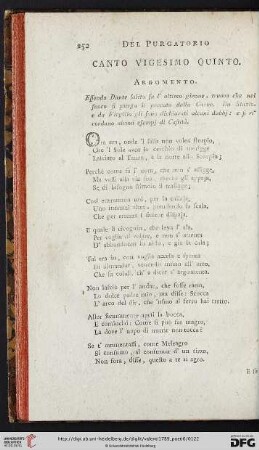 252 DEL PURGATORIO
CANTO VIGESIMO QUINTO.
ARGOMENTO.
Essendo Dante salito su l' ultimo girone, trova che nel
fuoco si purga il peccato della Da Stazio,
e da Virgilio gli sono dichiarati alcuni dubbj: e
alcuni esempj di Castità.
Ora era, onde 'l salir non volea storpio,
Che 'l Sole avea lo cerchio di merigge
Lasciato al Tauro, e la notte allo Scorpio;
Perchè come fa l' uom, che non s' affigge,
Ma vassi alla via sua, che gli appaja,
Se di bisogno stimolo il trafigge;
Così entrammo noi per la callaja,
Uno innanzi altro, prendendo la scala,
Che per artezza i salitor dispaja.
E quale il cicognin, che leva l' ala,
Per voglia di volare, e non s' attenta
D' abbandonar lo nido, e giù la cala;
Tal era io, con voglia accesa e spenta
Di dimandar, venendo infino all' atto,
Che fa colui, ch' a dicer s' argomenta.
Non lasciò per l' andar, che fosse ratto,
Lo dolce padre mio, ma disse: Scocca
L' arco del dir, che 'nfino al ferro hai tratto.
Allor sicuramente aprii la bocca,
E cominciai: Come si può far magro,
Là dove l' uopo di nutrir non tocca?
Se t' ammentassi, come Meleagro
Si consumò, al consumar d' un tizzo,
Non fora, disse, questo a te sì agro.
http://digi.ub.uni-heidelberg.de/diglit/
© Universitätsbibliothek Heidelberg
gefördert durch die
DFG